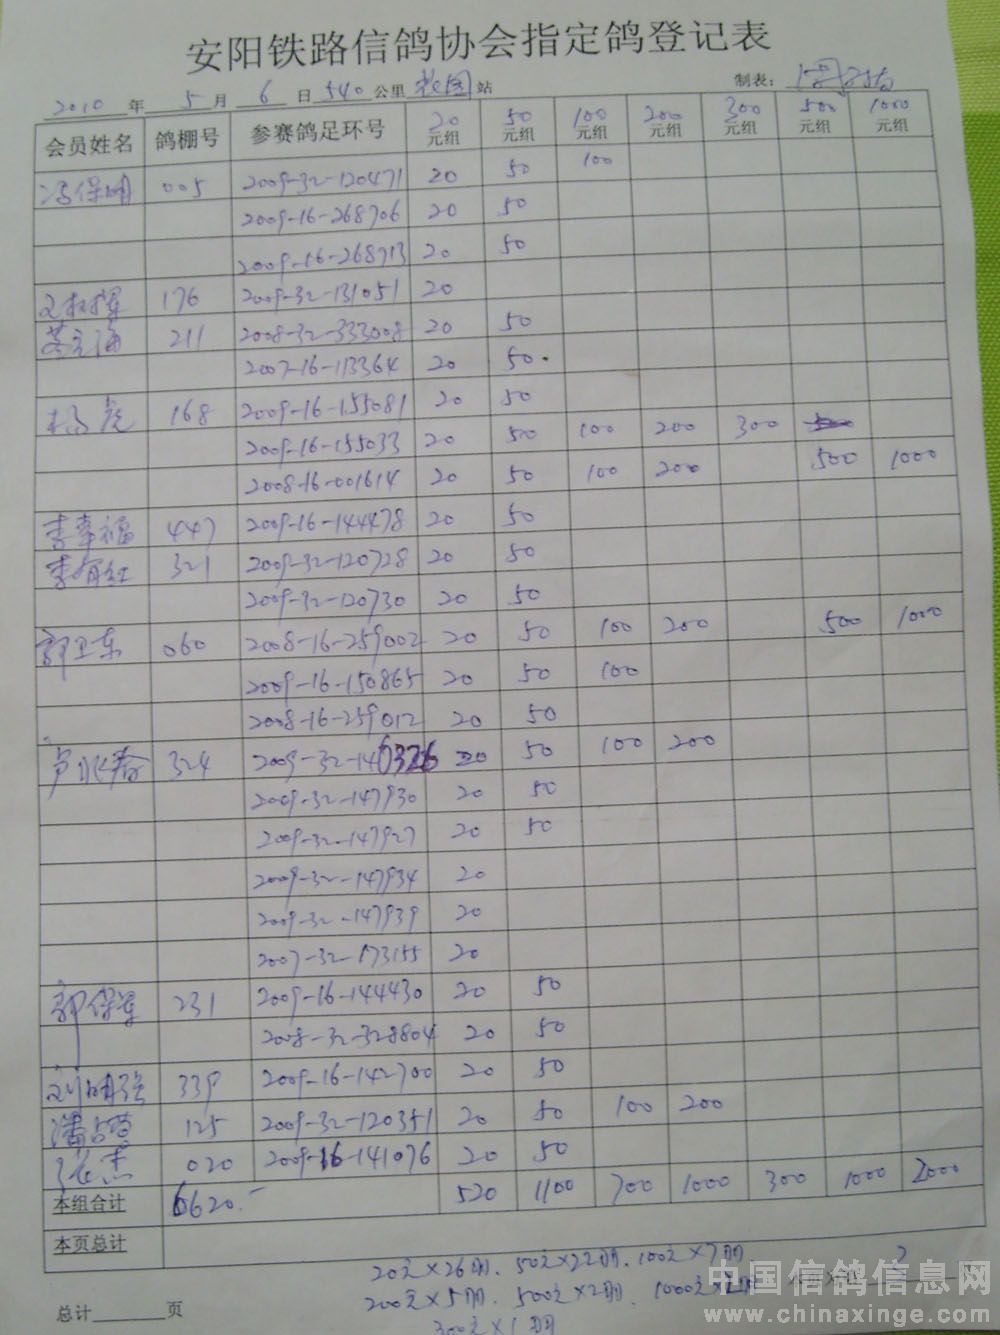 安阳铁路信鸽协会指定鸽登记表
2010 年 5 月 6 日 540 公里 站 制表：
会员姓名 鸽棚号 参赛鸽足环号 20元组 50元组 100元组 200元组 300元组 500元组 1000元组
冯保明 005 2009-32-120471 20 50 100
2009-16-268706 20 50
2009-16-268713 20 50
176 2009-32-131051 20
211 2008-32-333008 20 50
2007-16-113364 20 50.
杨虎 168 2009-16-155081 20 50
2009-16-155033 20 50 100 200 300
2008-16-001614 20 50 100 200 500 1000
李幸福 447 2009-16-144478 20 50
李有红 321 2009-32-120728 20 50
2009-32-120730 20 50
郭卫东 060 2008-16-259002 20 50 100 200 500 1000
2009-16-150865 20 50 100
2008-16-259012 20 50
324 2009-32-140326 20 50 100 200
2009-32-147930 20 50
2009-32-147927 20 50
2009-32-147934 20
2009-32-147939 20
2007-32-173155 20
郭保军 231 2009-16-144430 20 50
2008-32-328804 20 50
刘明强 339 2009-16-142700 20 50
125 2009-32-120351 20 50 100 200
张杰 020 2009-16-141076 20 50
本组合计 6620.- 520 1100 700 1000 300 1000 2000
本页总计
20元×26羽. 50元×22羽. 100元×7羽
200元×5羽. 500元×2羽. 1000元×2羽
300元×1羽
总计 页
中国信鸽信息网
www.chinaxinge.com